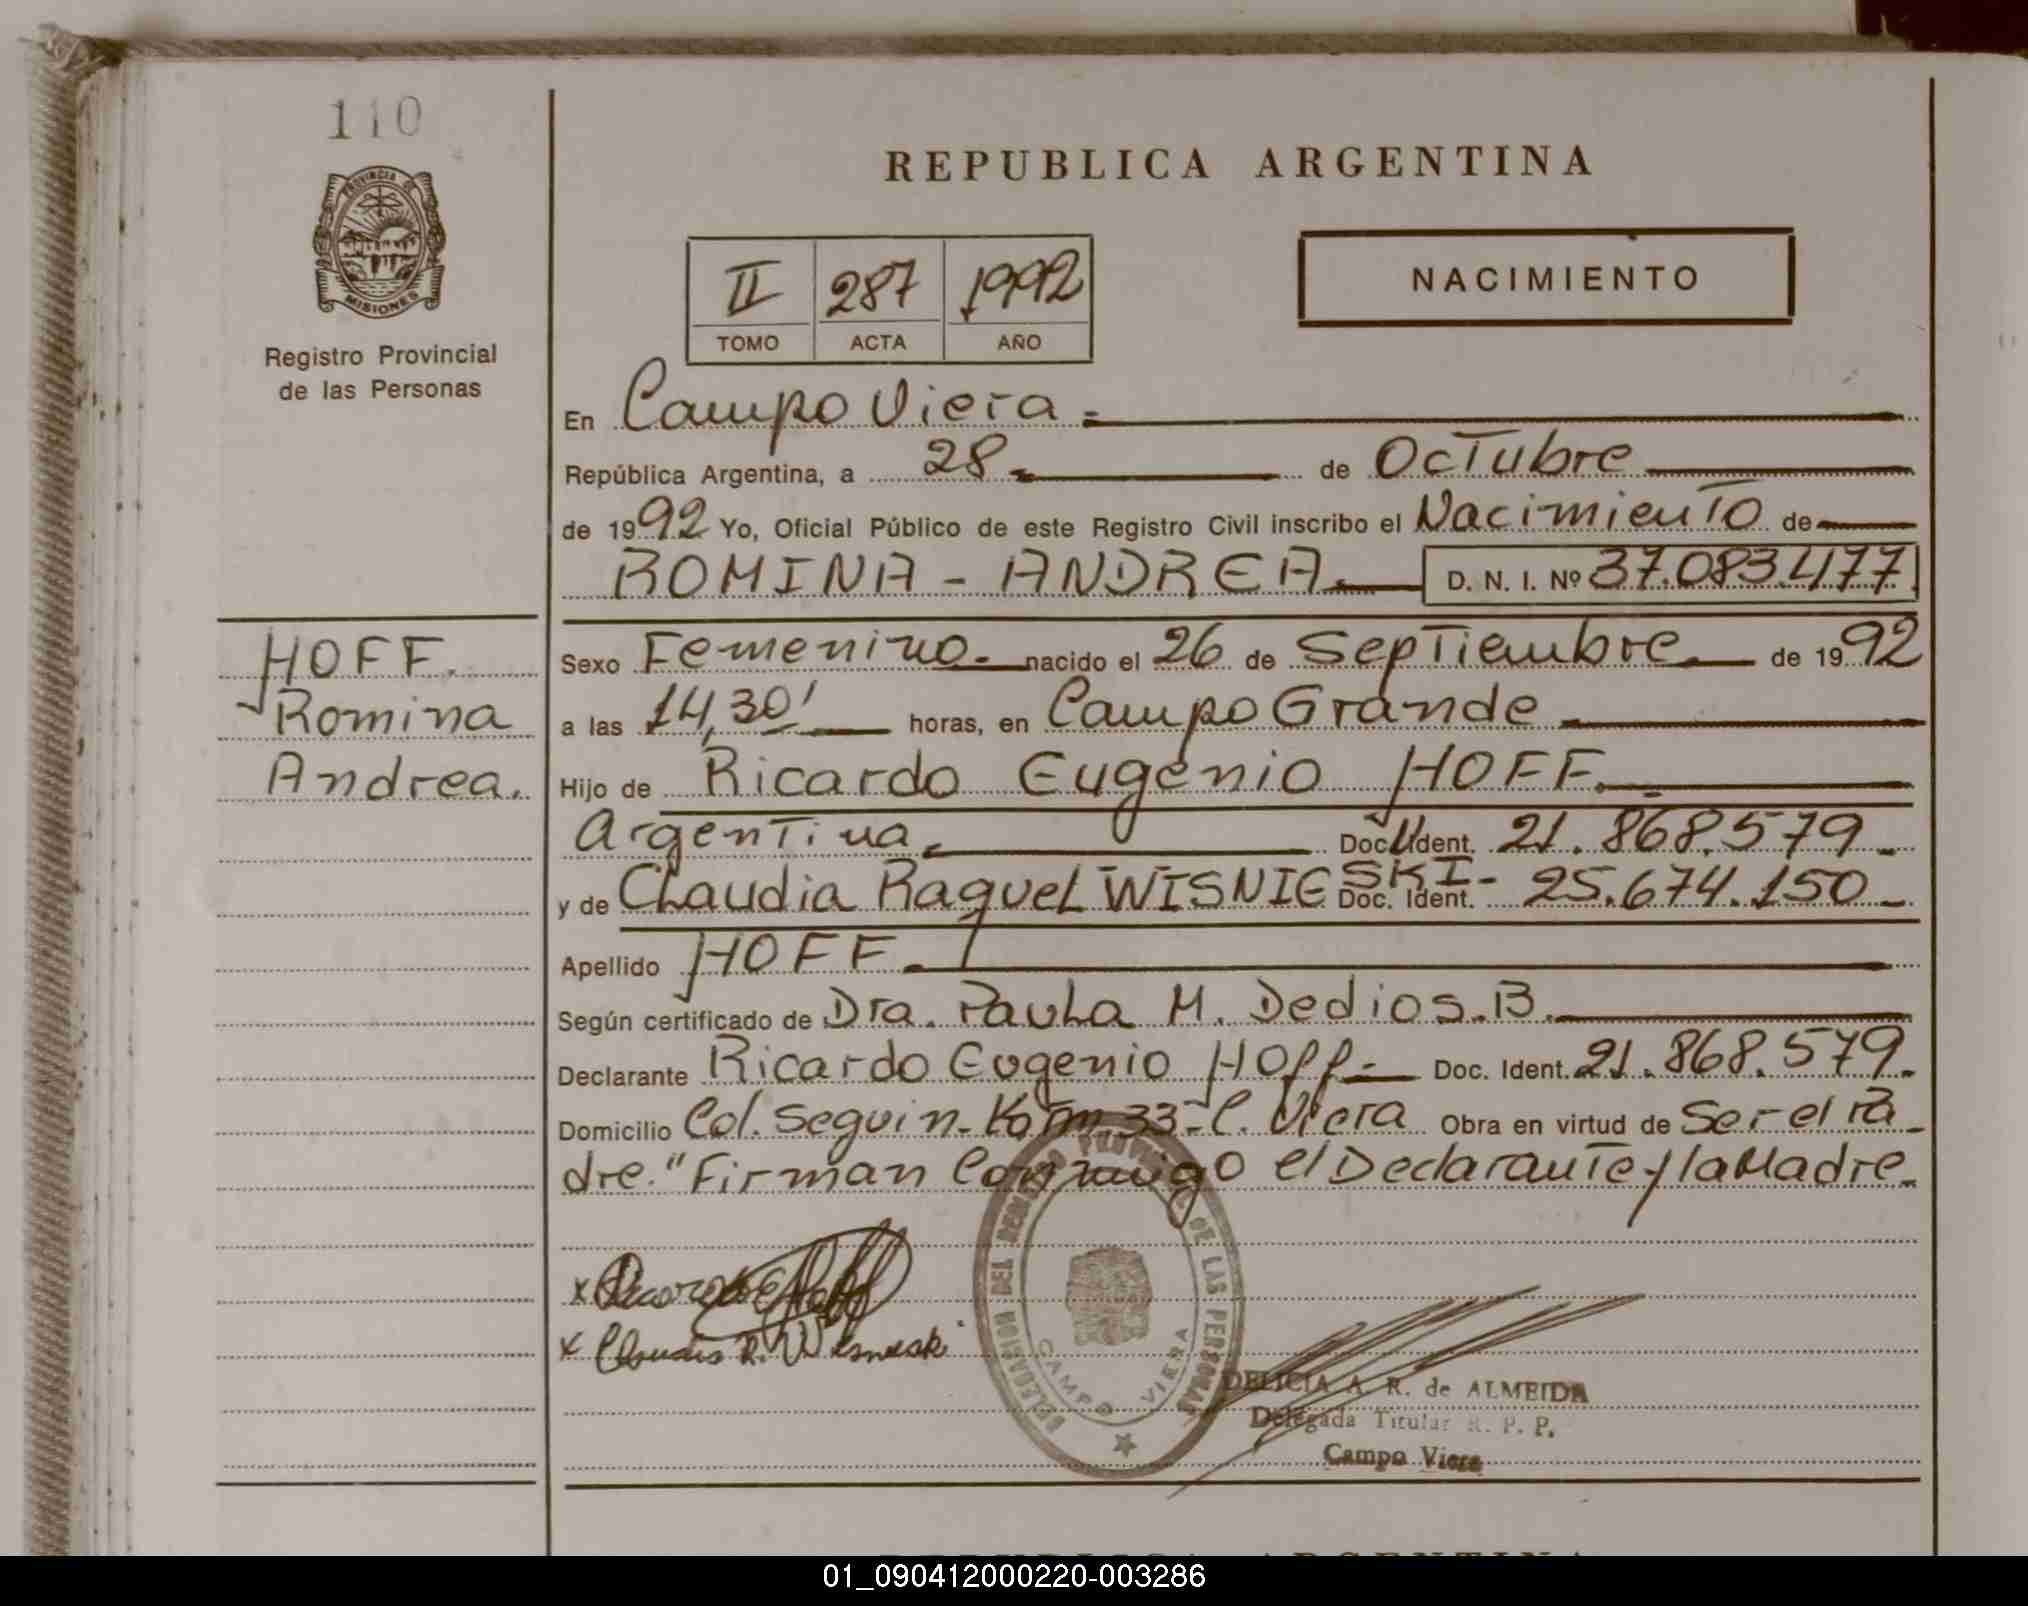 110
PROVINCIA DE
MISIONES
Registro Provincial
de las Personas
HOFF.
Romina
Andrea.
REPUBLICA ARGENTINA
II 287 1992
TOMO ACTA AÑO
NACIMIENTO
En Campo Viera =
República Argentina, a 28 de Octubre
de 1992 Yo, Oficial Público de este Registro Civil inscribo el Nacimiento de
ROMINA - ANDREA. D. N. I. Nº 37.083.477
Sexo Femenino. nacido el 26 de Septiembre. de 1992
a las 14,30' horas, en Campo Grande
Hijo de Ricardo Eugenio HOFF.
Argentina. Doc. Ident. 21.868.579 -
y de Claudia Raquel WISNIESKI - Doc. Ident. 25.674.150 -
Apellido HOFF.
Según certificado de Dra. Paula M. Dedios. B.
Declarante Ricardo Eugenio Hoff - Doc. Ident. 21.868.579.
Domicilio Col. Seguin - Km. 33 - C. Viera Obra en virtud de Ser el Pa-
dre. "Firman Conmigo el Declarante y la Madre.
x
x Claudia R. Wisnieski
DELEGACION DEL REGISTRO PROVINCIAL DE LAS PERSONAS
CAMPO VIERA
DELICIA A. R. de ALMEIDA
Delegada Titular R. P. P.
Campo Viera
01_090412000220-003286